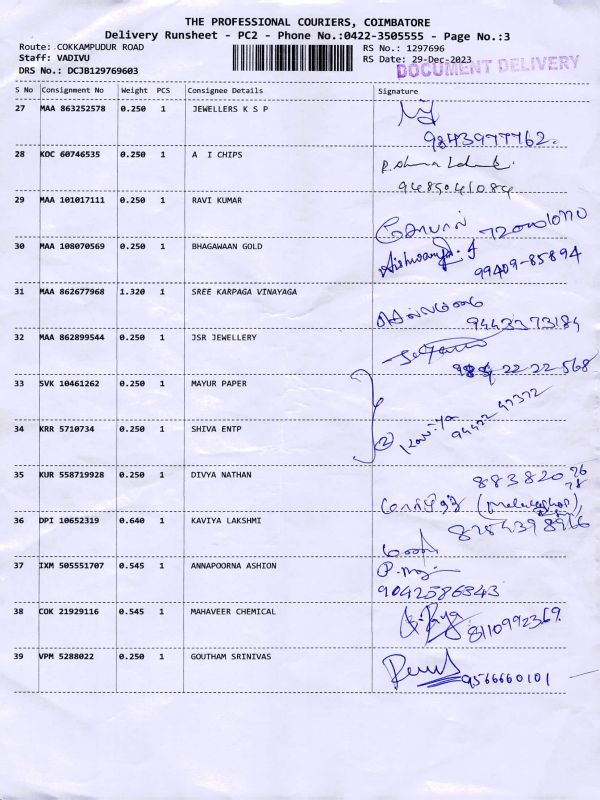 THE PROFESSIONAL COURIERS, COIMBATORE
Delivery Runsheet - PC2 - Phone No.:0422-3505555 - Page No.:3
Route: COKKAMPUDUR ROAD RS No.: 1297696
Staff: VADIVU RS Date: 29-Dec-2023
DRS No.: DCJB129769603
DOCUMENT DELIVERY
S No Consignment No Weight PCS Consignee Details Signature
27 MAA 863252578 0.250 1 JEWELLERS K S P
9843977762
28 KOC 60746535 0.250 1 A I CHIPS
9489041084
29 MAA 101017111 0.250 1 RAVI KUMAR
கோபால்
30 MAA 108070569 0.250 1 BHAGAWAAN GOLD
99409-85894
31 MAA 862677968 1.320 1 SREE KARPAGA VINAYAGA
9443373184
32 MAA 862899544 0.250 1 JSR JEWELLERY
22 22 568
33 SVK 10461262 0.250 1 MAYUR PAPER
34 KRR 5710734 0.250 1 SHIVA ENTP
② Kaviya 94422 47372
35 KUR 558719928 0.250 1 DIVYA NATHAN
883820 76
78
36 DPI 10652319 0.640 1 KAVIYA LAKSHMI
8754398966
37 IXM 505551707 0.545 1 ANNAPOORNA ASHION
9042586843
38 COK 21929116 0.545 1 MAHAVEER CHEMICAL
8110992369
39 VPM 5288022 0.250 1 GOUTHAM SRINIVAS
9566660101